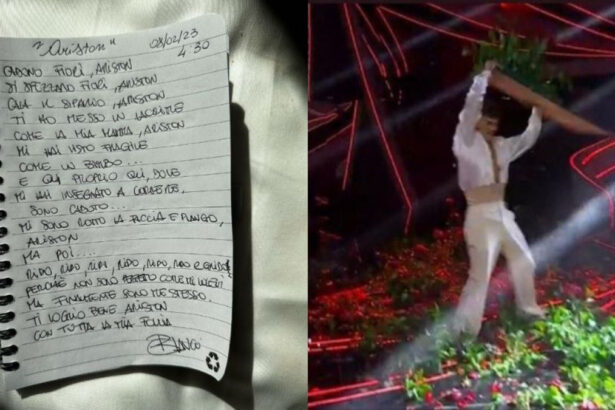 "Ariston" 08/02/23
4:30
CADONO FIORI, ARISTON
SI SPEZZANO FIORI, ARISTON
GIÙ IL SIPARIO, ARISTON
TI HO MESSO IN LACRIME
COME LA MIA MAMMA, ARISTON
MI HAI VISTO FRAGILE
COME UN BIMBO...
E QUI PROPRIO QUI, DOVE
MI HAI INSEGNATO A CORRERE,
SONO CADUTO...
MI SONO ROTTO LA FACCIA E PIANGO,
ARISTON
MA POI...
RIDO, RIDO, RIDO, RIDO, RIDO, RIDO E RIDO
PERCHÉ NON SONO COME MI VUOI
MA FINALMENTE SONO ME STESSO.
TI VOGLIO BENE ARISTON
CON TUTTA LA MIA FOLLIA
BLANCO